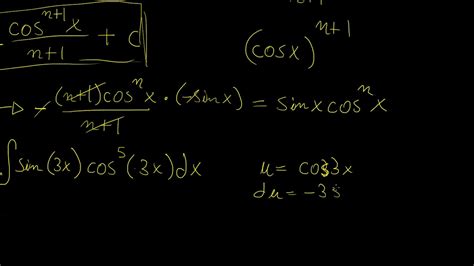 cos^{n+1} x / n+1 + C
(cosx)^{n+1}
→ - (n+1)cos^n x / n+1 · (-sinx) = sinx cos^n x
∫ sin(3x) cos^5 (3x)dx
u = cos3x
du = -3s